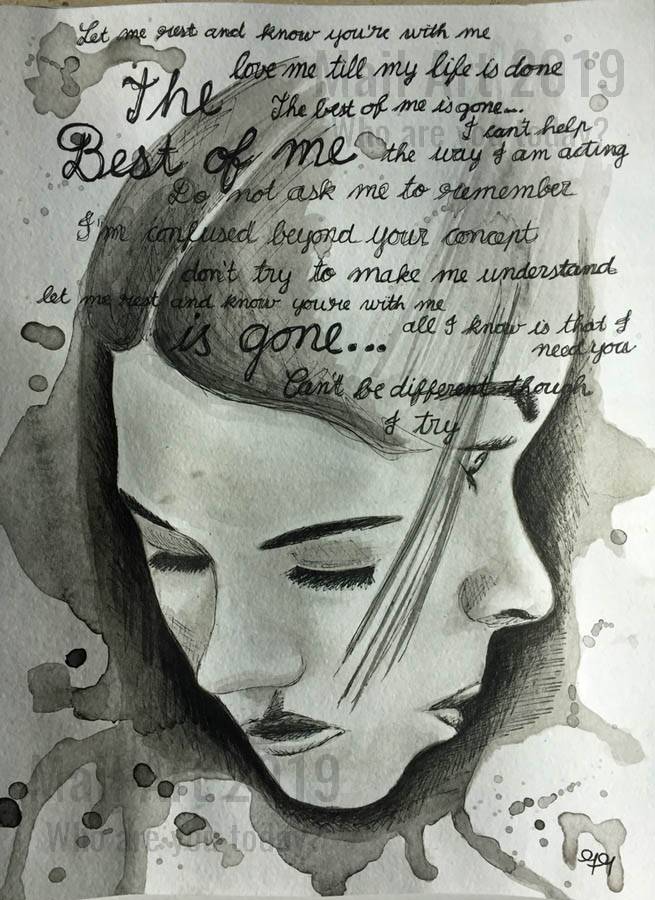 Let me rest and know you're with me
love me till my life is done
Mail Art 2019
The
The best of me is gone...
Who are you today?
I can't help
Best of me
the way I am acting
Do not ask me to remember
I'm confused beyond your concept
don't try to make me understand
let me rest and know you're with me
is gone...
all I know is that I
need you
Can't be different though
I try
Mail Art 2019
Who are you today?